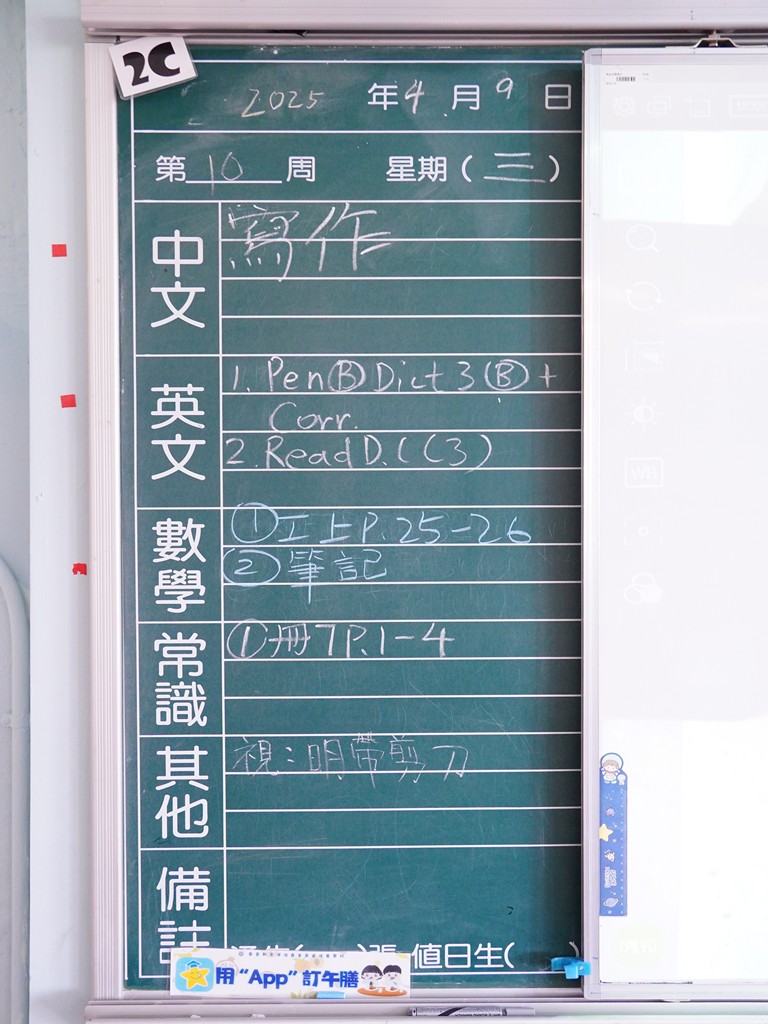 2C
2025 年 4 月 9 日
第 10 周 星期 ( 三 )
中文
寫作
英文
1. Pen Ⓑ Dict 3 Ⓑ +
Corr.
2. Read D. ( (3)
數學
① 工上 P. 25-26
② 筆記
常識
① 冊7 P.1-4
其他
視：明帶剪刀
備註
值日生( )
用 “App” 訂午膳
WB